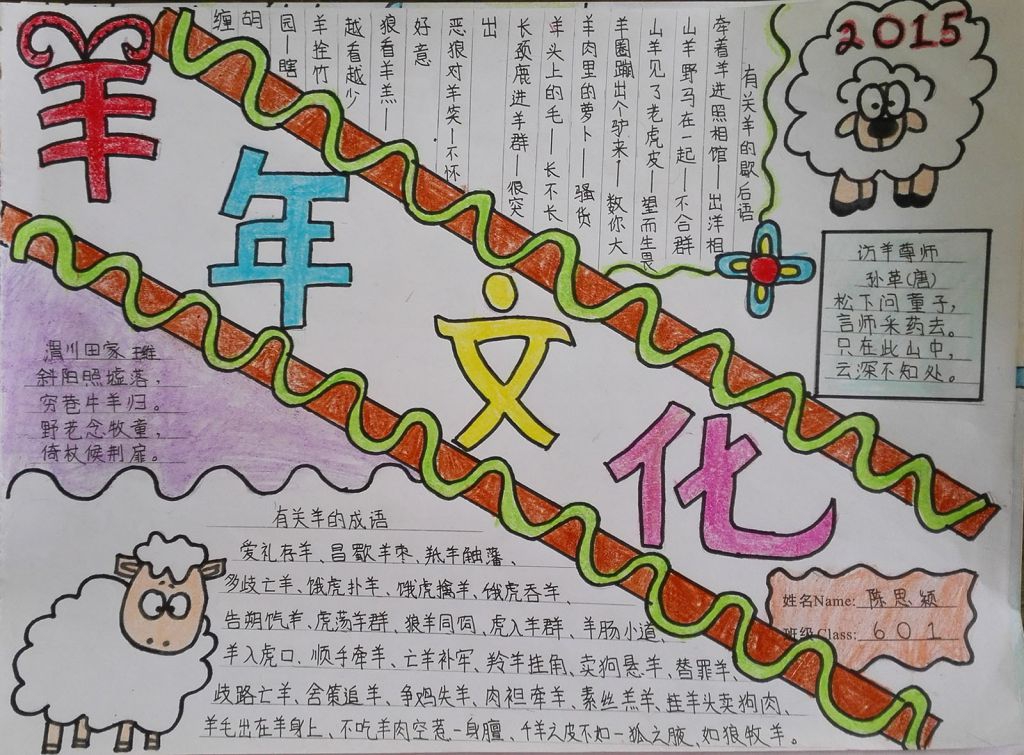 羊年文化
2015
有关羊的歇后语
牵着羊进照相馆—出洋相
山羊野马在一起—不合群
山羊见了老虎皮—望而生畏
羊圈蹦出个驴来—数你大
羊肉里的萝卜—骚货
羊头上的毛—长不长
长颈鹿进羊群—很突
出
恶狼对羊笑—不怀
好意
狼看羊羔—
越看越少
羊拴竹
园—瞎
胡
缠
访羊尊师
孙革(唐)
松下问童子,
言师采药去。
只在此山中,
云深不知处。
渭川田家 王维
斜阳照墟落,
穷巷牛羊归。
野老念牧童,
倚杖候荆扉。
有关羊的成语
爱礼存羊、昌歜羊枣、羝羊触藩、
多歧亡羊、饿虎扑羊、饿虎擒羊、俄虎吞羊、
告朔饩羊、虎荡羊群、狼羊同饲、虎入羊群、羊肠小道、
羊入虎口、顺手牵羊、亡羊补牢、羚羊挂角、卖狗悬羊、替罪羊、
歧路亡羊、舍策追羊、争鸡失羊、肉袒牵羊、素丝羔羊、挂羊头卖狗肉、
羊毛出在羊身上、不吃羊肉空惹一身膻、千羊之皮不如一狐之腋、如狼牧羊。
姓名Name: 陈思颖
班级Class: 601